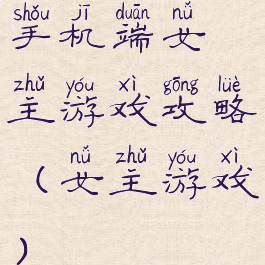 shǒu jī duān nǚ
手机端女
zhǔ yóu xì gōng lüè
主游戏攻略
nǚ zhǔ yóu xì
（女主游戏
）